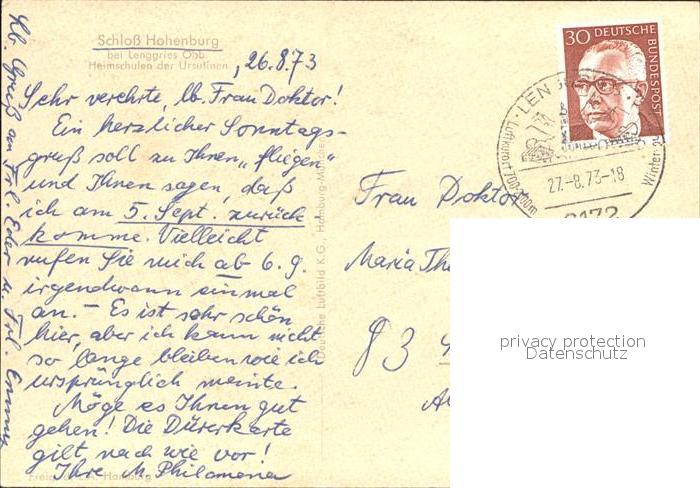 Schloß Hohenburg
bei Lenggries Obb.
Heimschulen der Ursulinen
, 26.8.73
Sehr verehrte, lb. Frau Doktor!
Ein herzlicher Sonntags-
gruß soll zu Ihnen „fliegen"
und Ihnen sagen, daß
ich am 5. Sept. zurück
komme. Vielleicht
rufen Sie mich ab 6.9.
irgendwann einmal
an. – Es ist sehr schön
hier, aber ich kann nicht
so lange bleiben wie ich
ursprünglich meinte.
Möge es Ihnen gut
gehen! Die Dürerkarte
gilt nach wie vor!
Ihre M. Philomena
Lb. Gruß an Frl. Eder u. Frl. Emmy
Deutsche Luftbild K.G., Hamburg
30 DEUTSCHE
BUNDESPOST
LEN
Luftkurort 700-
27.-8.73-18
Winter
8172
Frau Doktor
Maria Th
83
privacy protection
Datenschutz
Hamburg